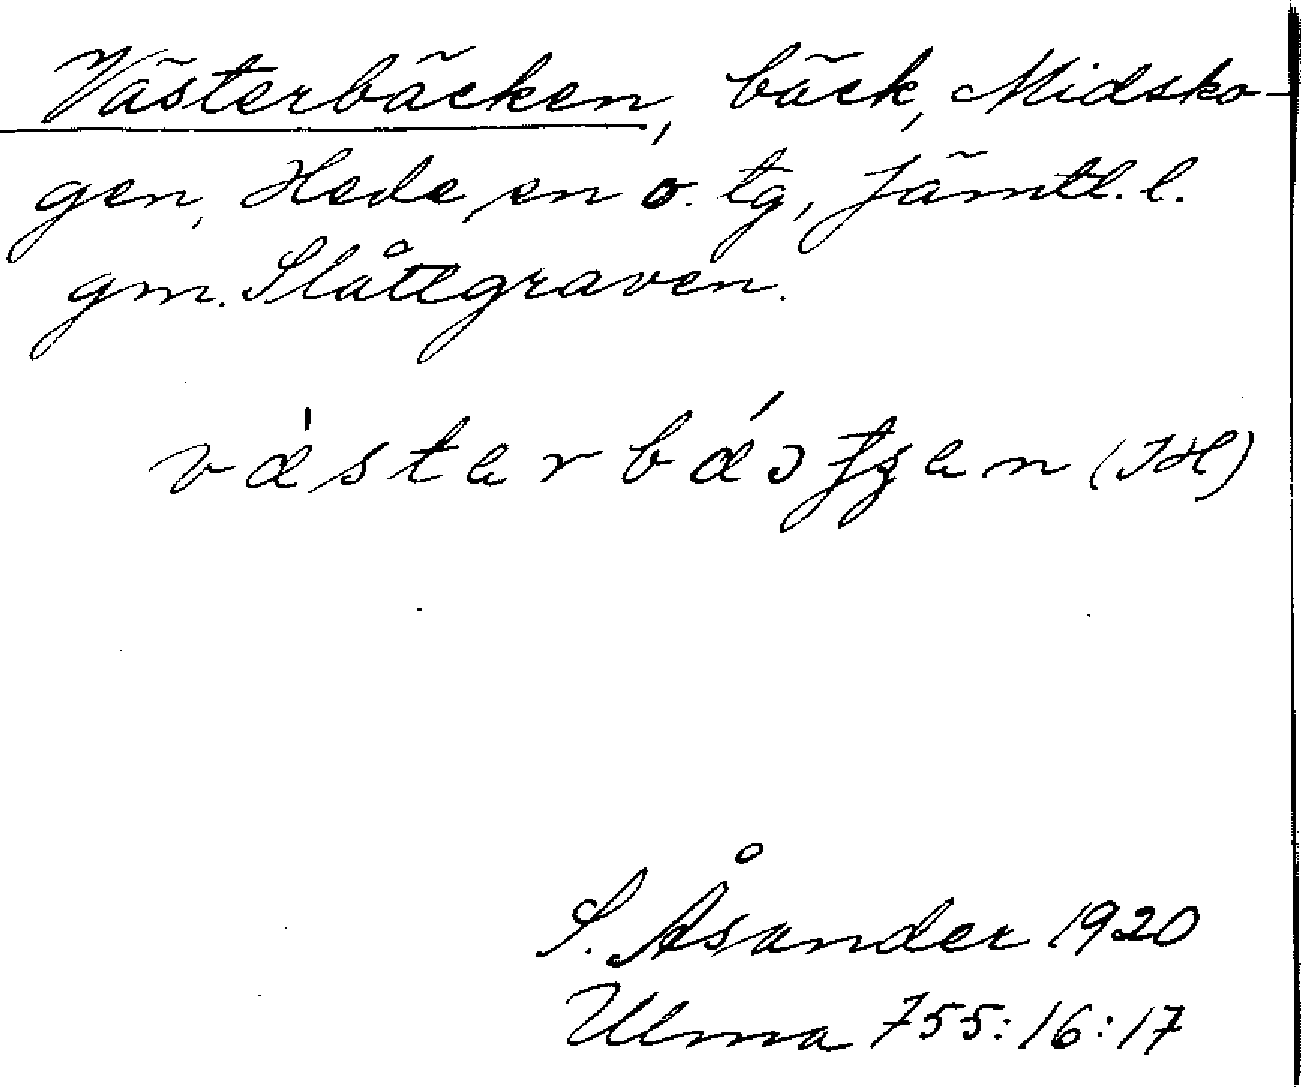 Västerbäcken, bäck, Midsko-
gen, Hede, en o. tg, Jämtl. l.
gm. Slåttgraven.
(JH)
S. Åsander 1920
Ulma 755:16:17